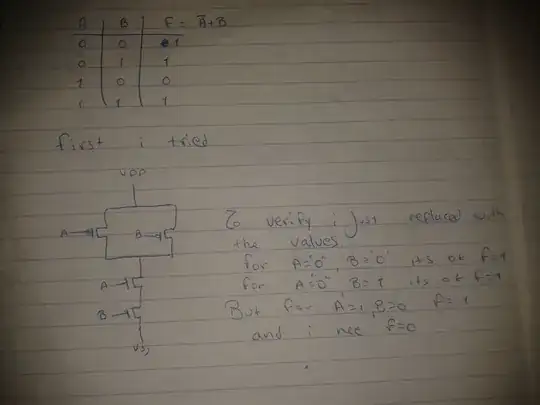 A B F = A̅+B
0 0 1
0 1 1
1 0 0
1 1 1
first i tried
VDD
A B
A
B
VSS
To verify i just replaced with
the values
for A="0", B="0" its ok f=1
for A="0" B=1 its ok f=1
But for A=1, B=0 f=1
and i nee f=0